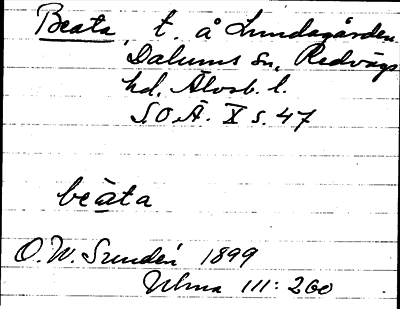 Beata, t. å Lundagården
Dalums sn, Redvägs
hd, Älvsb. l.
S.O.Ä. X s. 47
beata
O.W. Sundén 1899
Ulma 111: 260